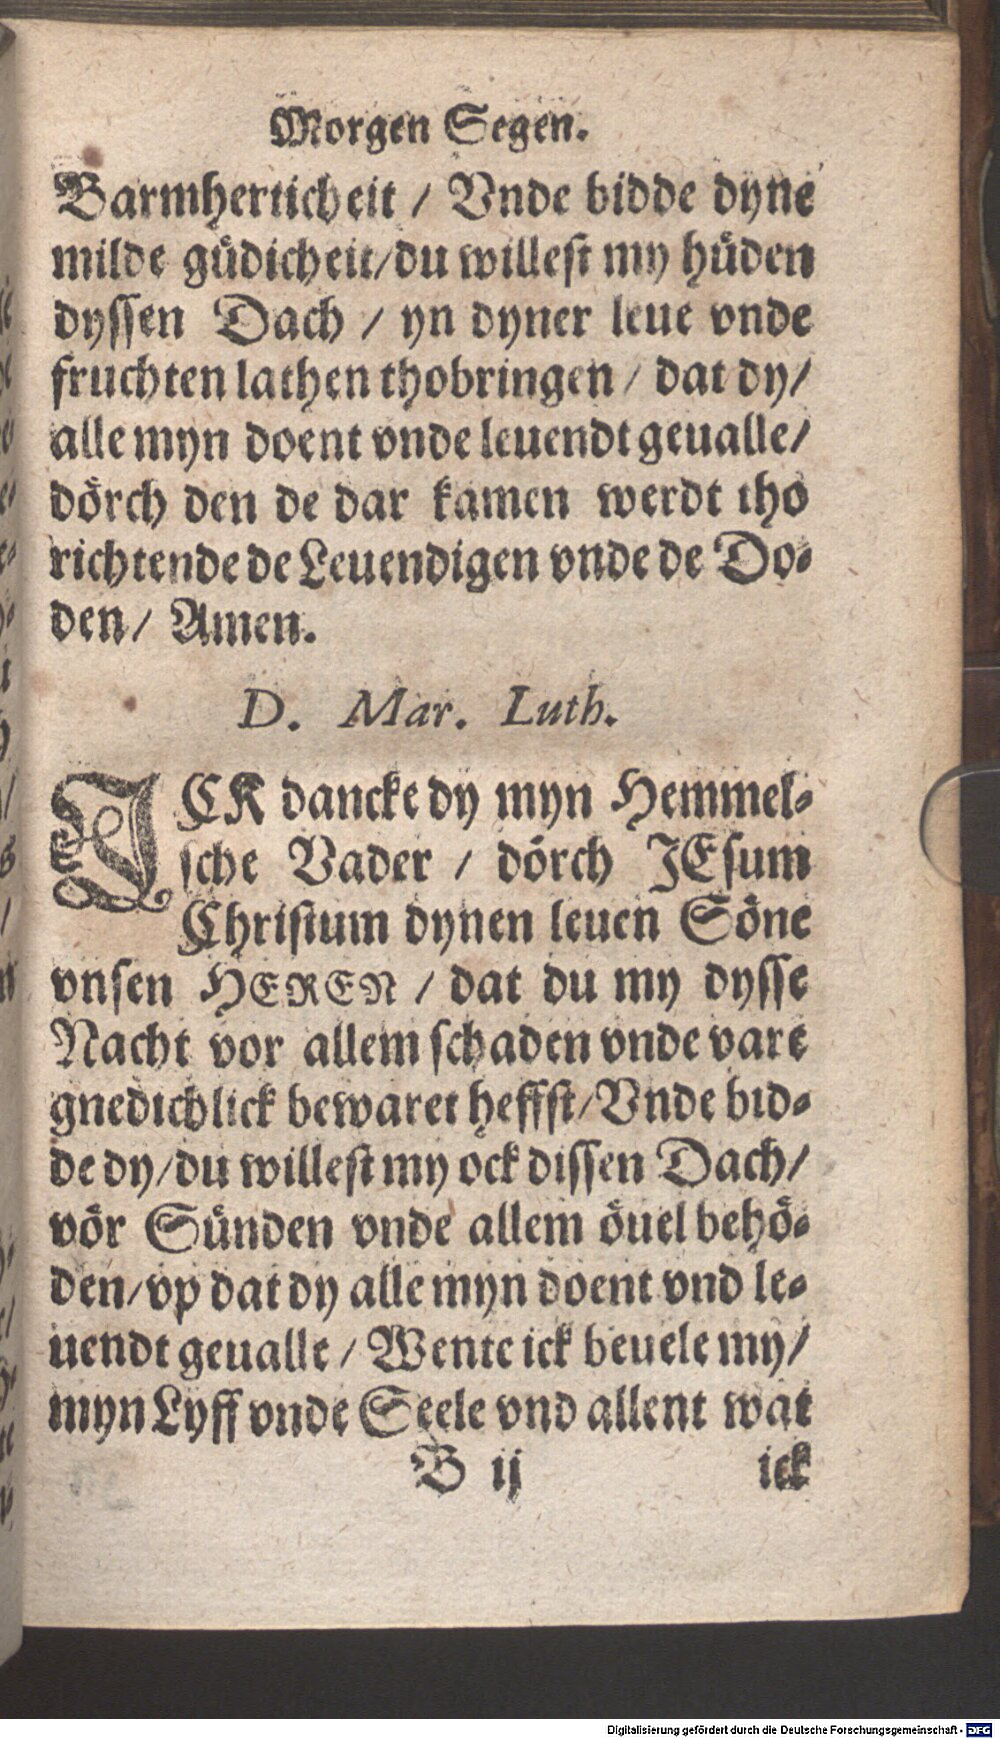 Morgen Segen.
Barmherticheit / Vnde bidde dyne
milde güdicheit/du willest my hüden
dyssen Dach / yn dyner leue vnde
fruchten lathen thobringen / dat dy/
alle myn doent vnde leuendt geualle/
dörch den de dar kamen werdt tho
richtende de Leuendigen vnde de Do-
den/ Amen.
D. Mar. Luth.
ICK dancke dy myn Hemmel-
sche Vader / dörch JEsum
Christum dynen leuen Söne
vnsen HEREN / dat du my dysse
Nacht vor allem schaden vnde vare
gnedichlick bewaret heffst/Vnde bid-
de dy/du willest my ock dissen Dach/
vör Sünden vnde allem öuel behö-
den/vp dat dy alle myn doent vnd le-
uendt geualle / Wente ick beuele my/
myn Lyff vnde Seele vnd allent wat
B ij ick
Digitalisierung gefördert durch die Deutsche Forschungsgemeinschaft - DFG